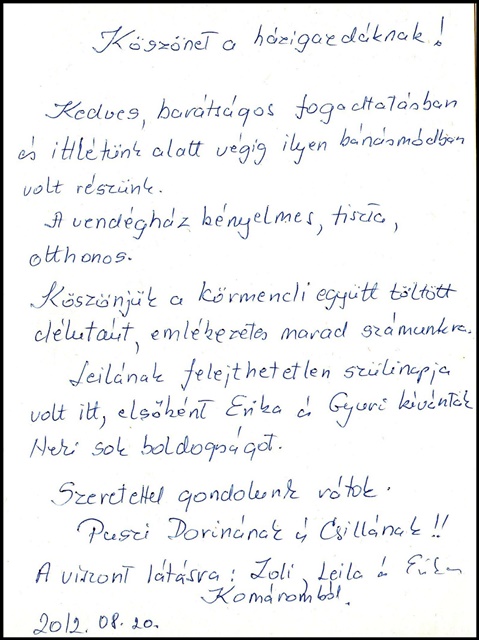 Köszönet a házigazdáknak!
Kedves, barátságos fogadtatásban
és ittlétünk alatt végig ilyen bánásmódban
volt részünk.
A vendégház kényelmes, tiszta,
otthonos.
Köszönjük a körmendi együtt töltött
délutánt, emlékezetes marad számunkra.
Leilának felejthetetlen szülinapja
volt itt, elsőként Erika és Gyuri kívántak
Neki sok boldogságot.
Szeretettel gondolunk rátok.
Puszi Dorinának és Csillának!!
A viszont látásra: Zoli, Leila és Erika
Komáromból.
2012. 08. 20.